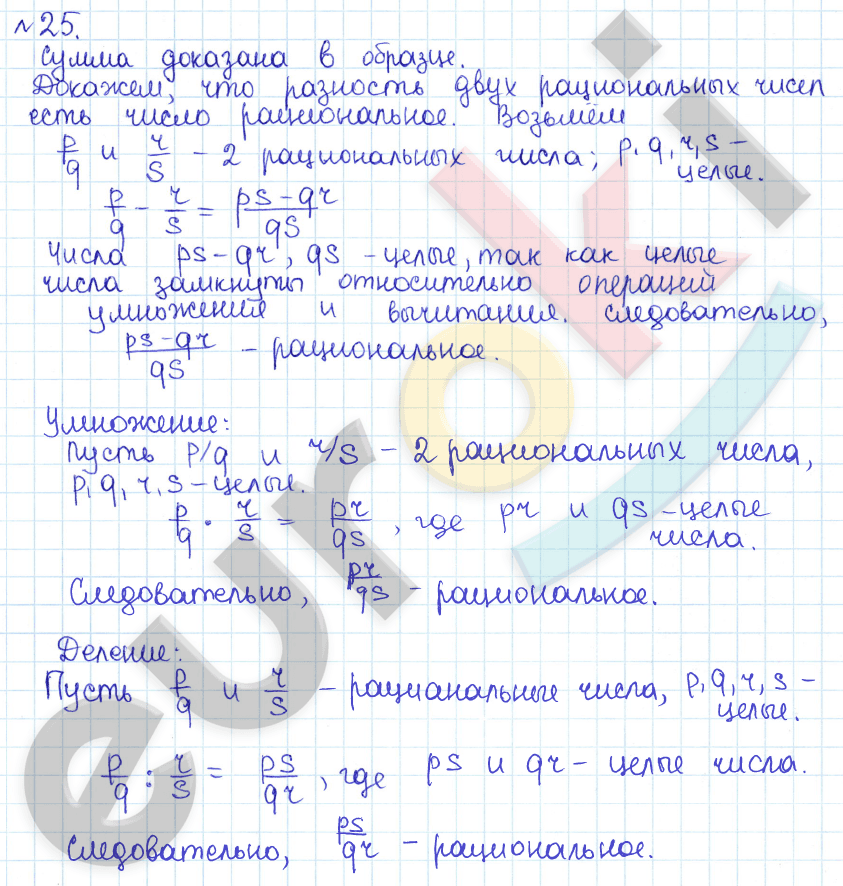 №25.
Сумма доказана в образце.
Докажем, что разность двух рациональных чисел
есть число рациональное. Возьмём
p/q и r/s - 2 рациональных числа; p, q, r, s -
целые.
p/q - r/s = (ps-qr)/qs
Числа ps-qr, qs - целые, так как целые
числа замкнуты относительно операций
умножения и вычитания. Следовательно,
(ps-qr)/qs - рациональное.
Умножение:
Пусть p/q и r/s - 2 рациональных числа,
p, q, r, s - целые.
p/q · r/s = pr/qs, где pr и qs - целые
числа.
Следовательно, pr/qs - рациональное.
Деление:
Пусть p/q и r/s - рациональные числа, p, q, r, s -
целые.
p/q : r/s = ps/qr, где ps и qr - целые числа.
Следовательно, ps/qr - рациональное.
euroki